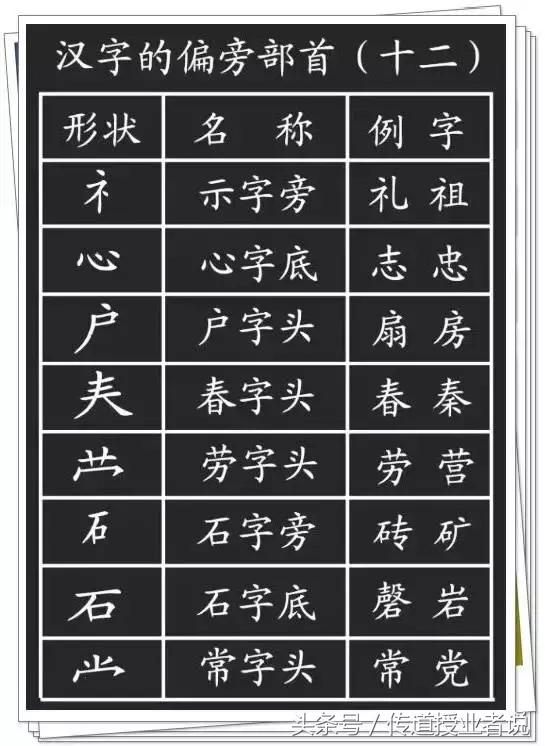 汉字的偏旁部首（十二）
形状 名称 例字
礻 示字旁 礼 祖
心 心字底 志 忠
户 户字头 扇 房
𡗗 春字头 春 秦
龷 劳字头 劳 营
石 石字旁 砖 矿
石 石字底 磬 岩
⺌冖 常字头 常 党
头条号／传道授业者说